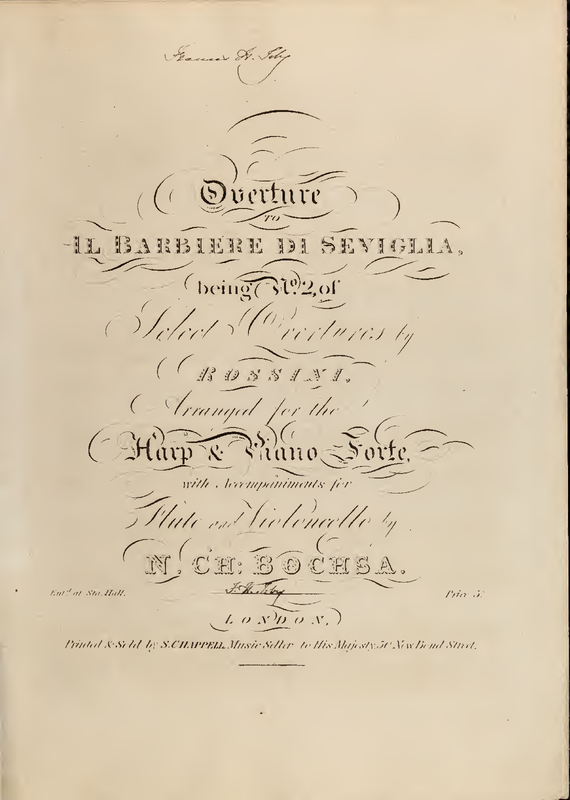 Overture
TO
IL BARBIERE DI SEVIGLIA,
being No. 2, of
Select Overtures by
ROSSINI,
Arranged for the
Harp & Piano Forte,
with Accompaniments for
Flute and Violoncello by
N. CH: BOCHSA.
Entd. at Sta. Hall. Price 5
LONDON,
Printed & Sold by S. CHAPPELL, Music Seller to His Majesty, 50 New Bond Street.